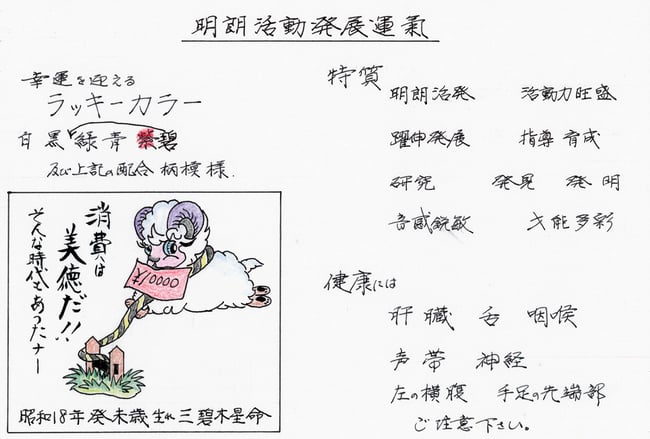 明朗活動発展運氣
幸運を迎える
ラッキーカラー
白 黒 緑 青 紫 碧
及び上記の配合 柄模様.
消費は
美徳だ!!
そんな時代もあったナー
¥10000
昭和18年癸未歳生れ三碧木星命
特質
明朗活発 活動力旺盛
躍伸発展 指導育成
研究 発見 発明
音感鋭敏 才能多彩
健康には
肝臓 舌 咽喉
声帯 神経
左の横腹 手足の先端部
ご注意下さい。